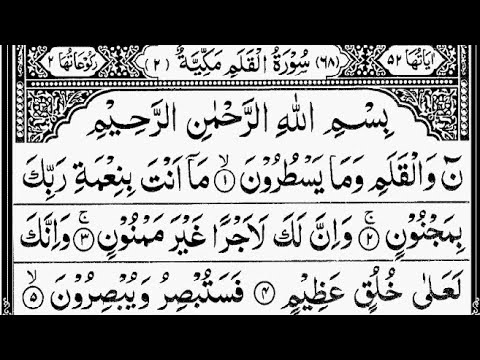 اٰيَاتُهَا ٥٢ (٦٨) سُوْرَةُ الْقَلَمِ مَكِّيَّةٌ (٢) رُكُوْعَاتُهَا ٢
بِسْمِ اللّٰهِ الرَّحْمٰنِ الرَّحِيْمِ
نٓ وَالْقَلَمِ وَمَا يَسْطُرُوْنَ ۙ﴿۱﴾ مَاۤ اَنْتَ بِنِعْمَةِ رَبِّكَ
بِمَجْنُوْنٍ ۚ﴿۲﴾ وَاِنَّ لَكَ لَاَجْرًا غَيْرَ مَمْنُوْنٍ ۚ﴿۳﴾ وَاِنَّكَ
لَعَلٰى خُلُقٍ عَظِيْمٍ ﴿۴﴾ فَسَتُبْصِرُ وَيُبْصِرُوْنَ ۙ﴿۵﴾